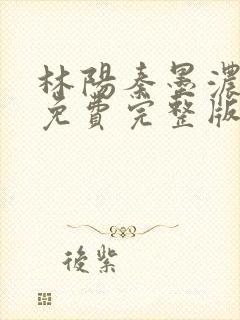 林陽秦墨濃
免費完整版
後紫